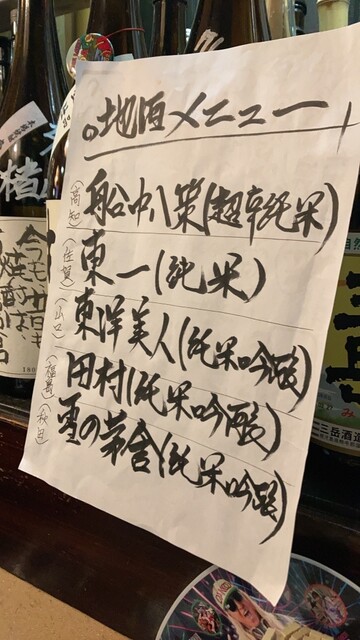 。地酒メニュー
(高知) 船中八策(超辛純米)
(佐賀) 東一(純米)
(山口) 東洋美人(純米吟醸)
(福島) 田村(純米吟醸)
(秋田) 雪の茅舎(純米吟醸)